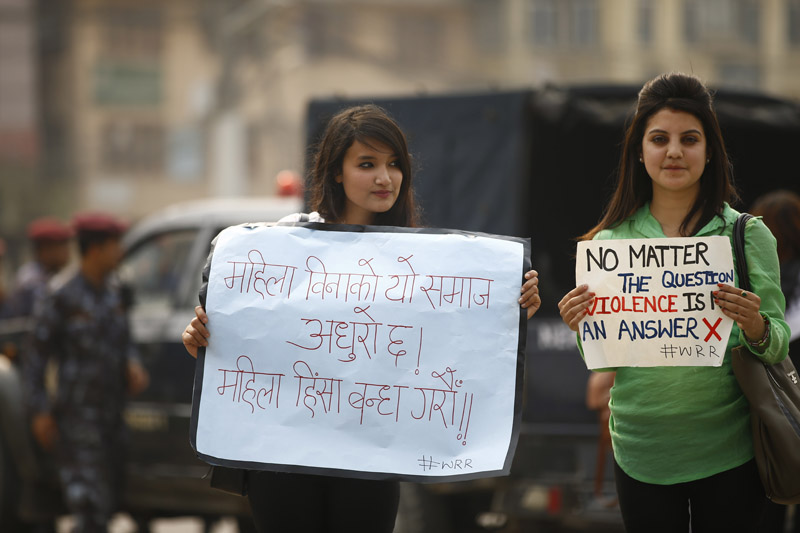 महिला विनाको यो समाज
अधुरो छ।
महिला हिंसा बन्धा गरौं!!
#WRR
NO MATTER
THE QUESTION
VIOLENCE IS
AN ANSWER X
#WRR